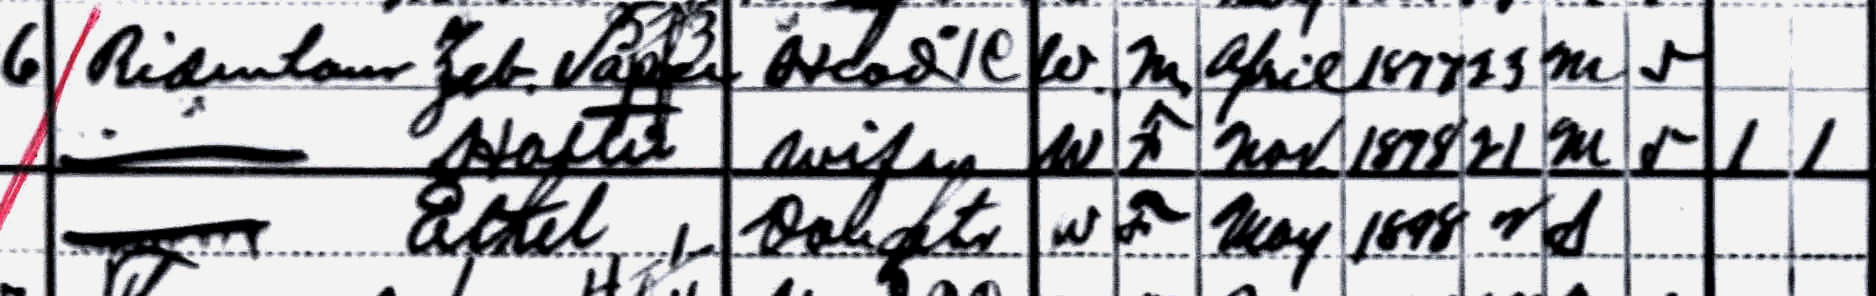 6 Ridenhour Zeb. V Head W. M April 1877 23 M 5
Hattie wife W F Nov. 1878 21 M 5 1 1
Ethel Daughter W F May 1898 2 S